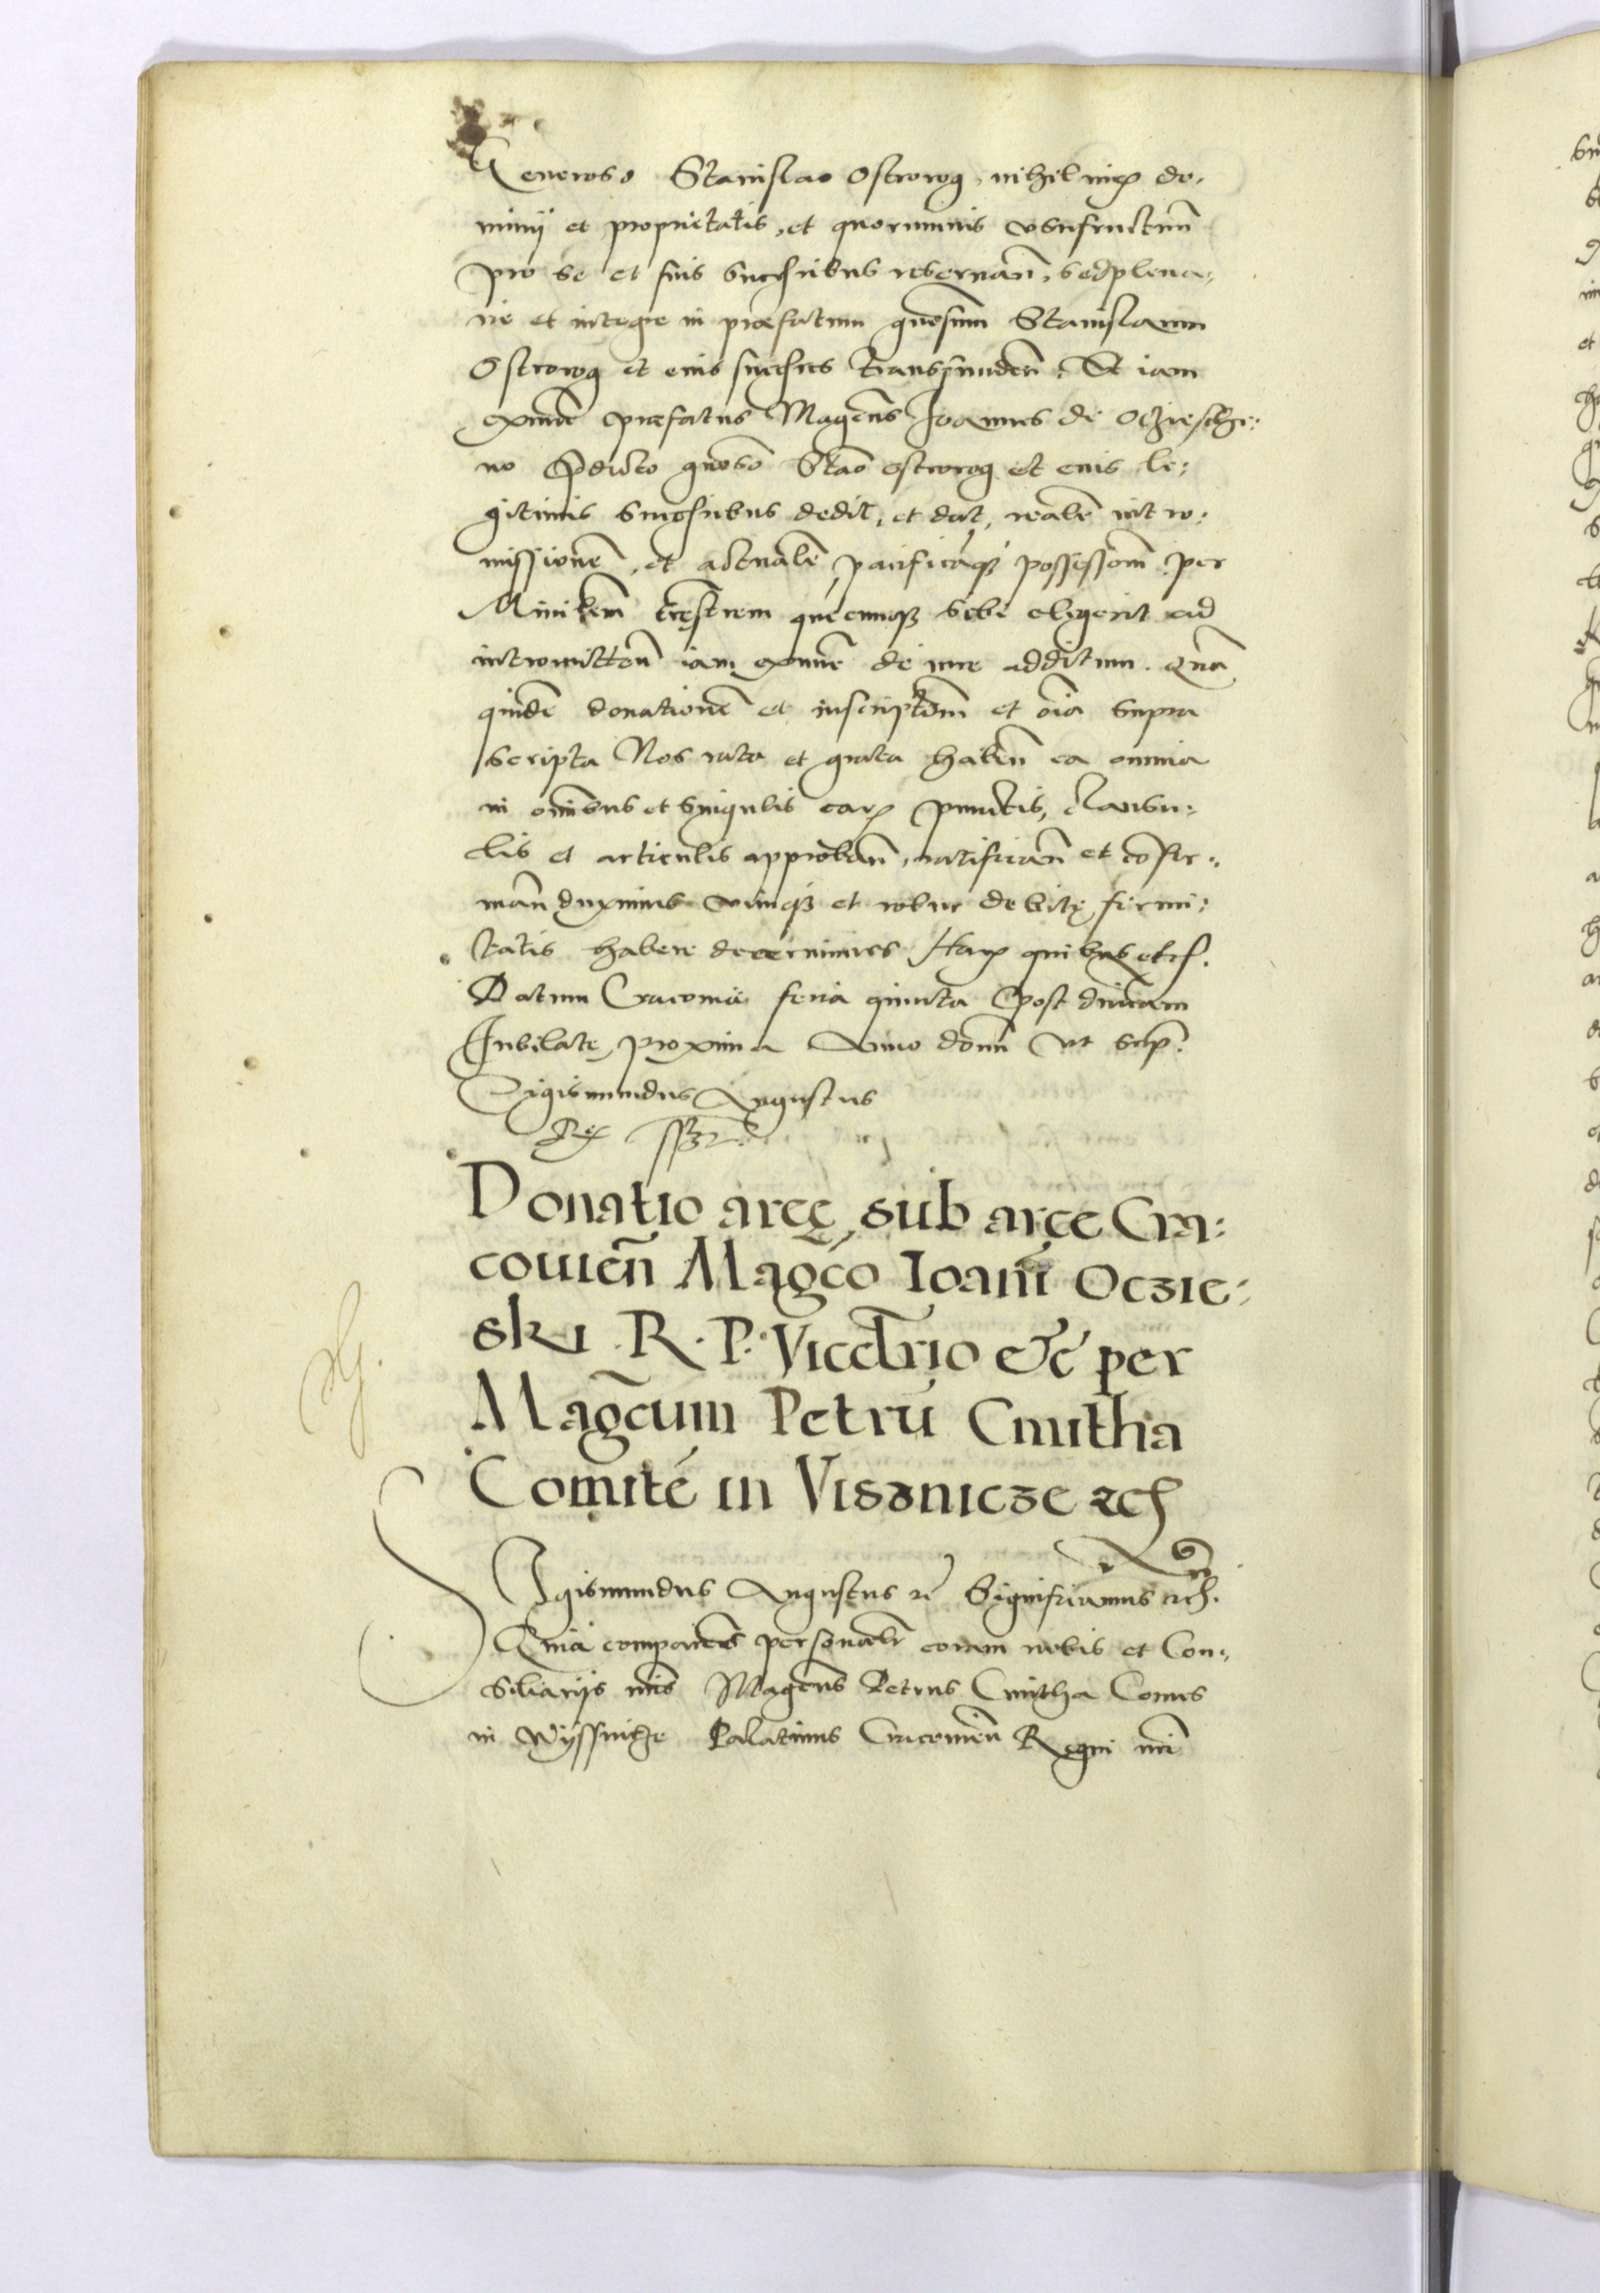 Generoso Stanislao Ostrorog, nihil iuris do,
minij et proprietatis, et quorumuis vsufructuum
pro se et suis successoribus reseruan̄, sed plena,
rie et integre in praefatum gn̄osum Stanislaum
Ostrorog et eius successores transfunden̄. Et iam
exnunc praefatus Magcus Joannes de Oczieschi:
no p̄dicto gn̄oso Stāo ostrorog et eius le:
gitimis successoribus dedit, et dat, realē intro:
missionē, et actualē, pacificāq possessionem per
Ministerialem terrestrem quēcunq sibi elegerit ad
intromitten̄ iam exnunc de iure additum. Quā
quidē donationē et inscriptōem et oīa supra
scripta Nos rata et grata haben̄ ea omnia
in omībus et singulis earum punctis, clausu:
lis et articulis approban̄, ratifican̄ et confir:
man̄ duximus vimq et robur debitę firmi:
tatis habere decernimus Harum quibus etc.
Datum Cracouiæ feria quinta post dnīcam
Jubilate, proxima Anno domī vt sup.
Sigismundus Augustus
Rex sszt
Donatio areę, sub arce Cra:
couień Magc̄o Ioanī Oczie:
ski R. P. Vicecn̄rio &c per
Magc̄um Petrū Cmitha
Comitē in Visznicze etc
Sigismundus Augustus etc Significamus etc.
Quia comparens personalr coram nobis et Con,
siliarijs nr̄is Magcus Petrus Cmitha Comes
in Wyssnicze Palatinus Cracouien̄ Regni nrī